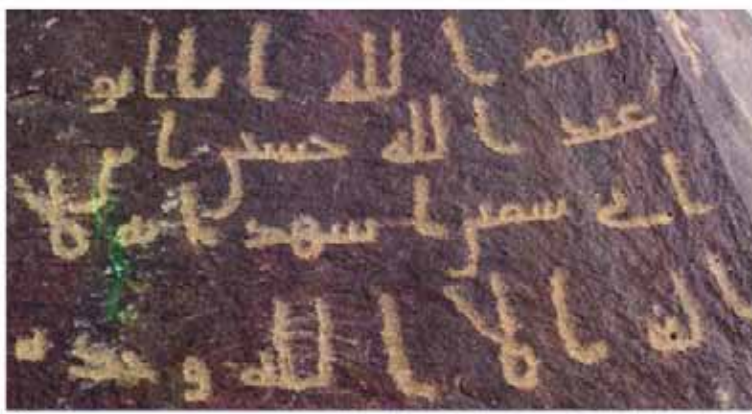 بسم الله انا ابو
عبد الله حسين ابن
ابي سمير اشهد ان لا
اله الا الله وحده